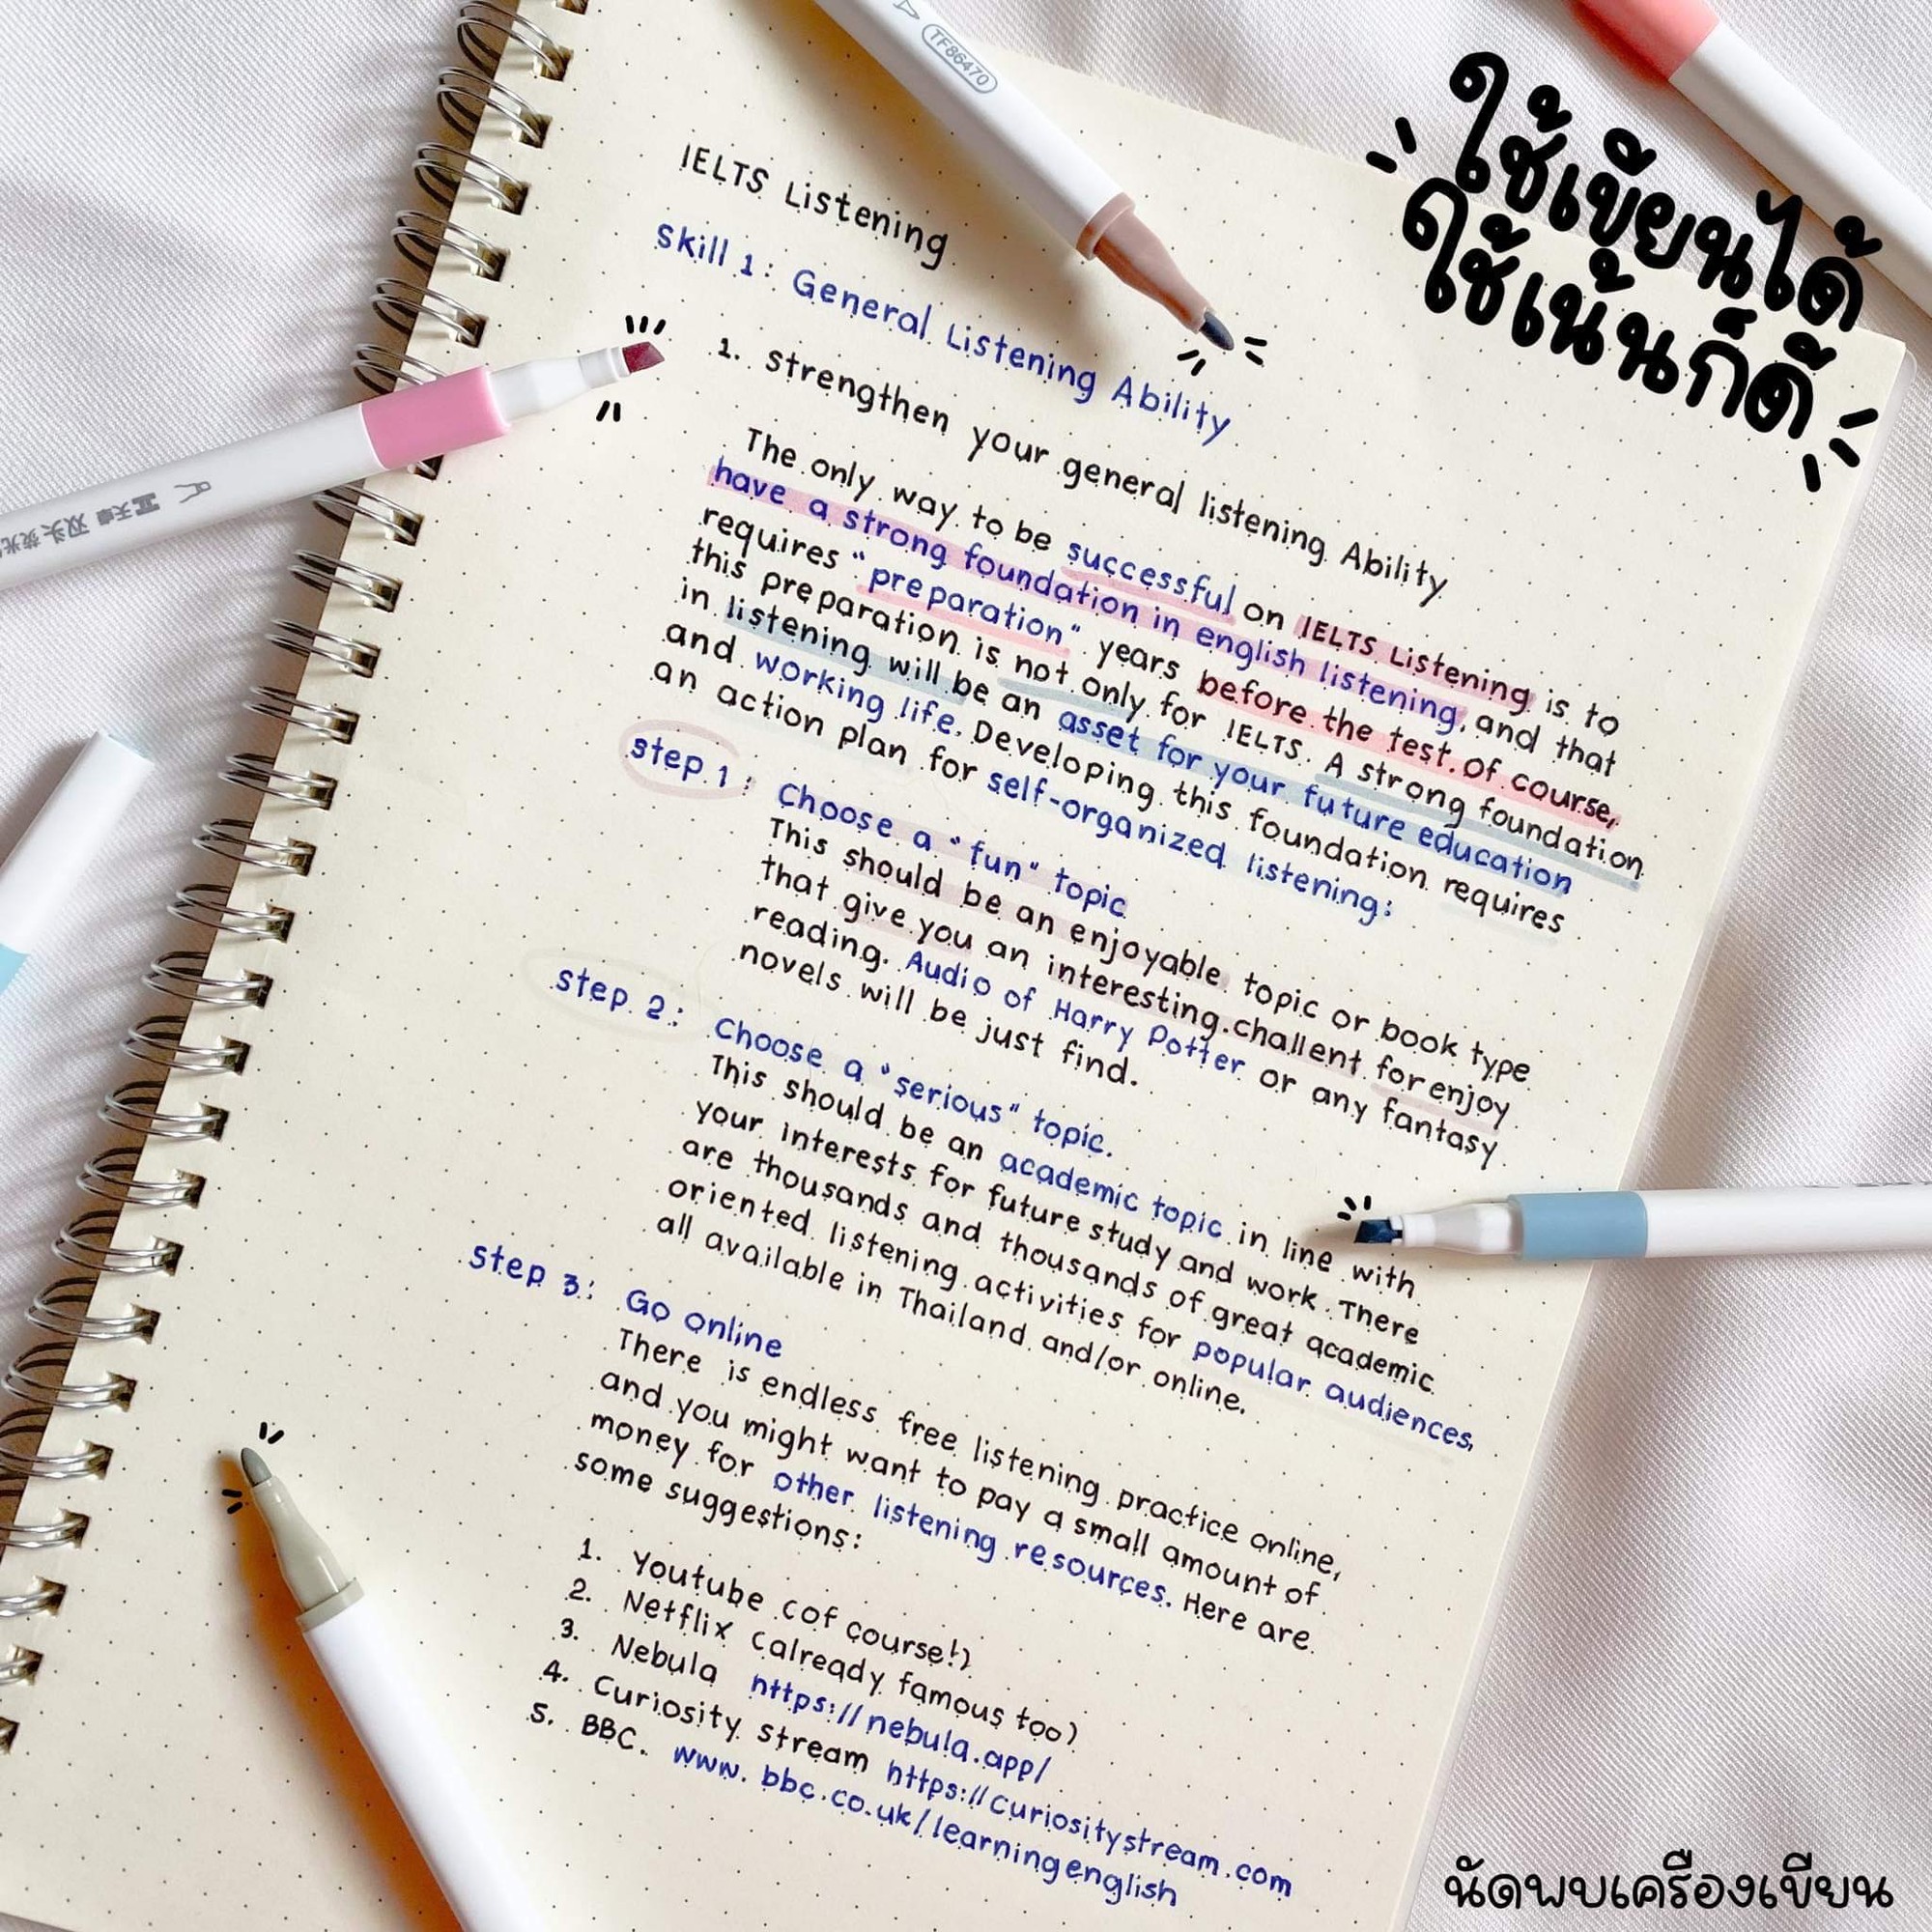 TF86470
ใช้เขียนได้
ใช้เน้นก็ดี
IELTS Listening
Skill 1: General Listening Ability
1. Strengthen your general listening Ability
The only way to be successful on IELTS Listening is to
have a strong foundation in english listening, and that
requires "preparation" years before the test. Of course,
this preparation is not only for IELTS. A strong foundation
in listening will be an asset for your future education
and working life. Developing this foundation requires
an action plan for self-organized listening:
step 1: Choose a "fun" topic
This should be an enjoyable topic or book type
that give you an interesting challent for enjoy
reading. Audio of Harry Potter or any fantasy
novels will be just find.
step 2: Choose a "serious" topic.
This should be an academic topic in line with
your interests for future study and work. There
are thousands and thousands of great academic
oriented listening activities for popular audiences,
all available in Thailand and/or online.
Step 3: Go online
There is endless free listening practice online,
and you might want to pay a small amount of
money for other listening resources. Here are
some suggestions:
1. Youtube (of course!)
2. Netflix (already famous too)
3. Nebula https://nebula.app/
4. Curiosity Stream https://curiositystream.com
5. BBC. www.bbc.co.uk/learningenglish
天卓 双头荧光
นัดพบเครื่องเขียน